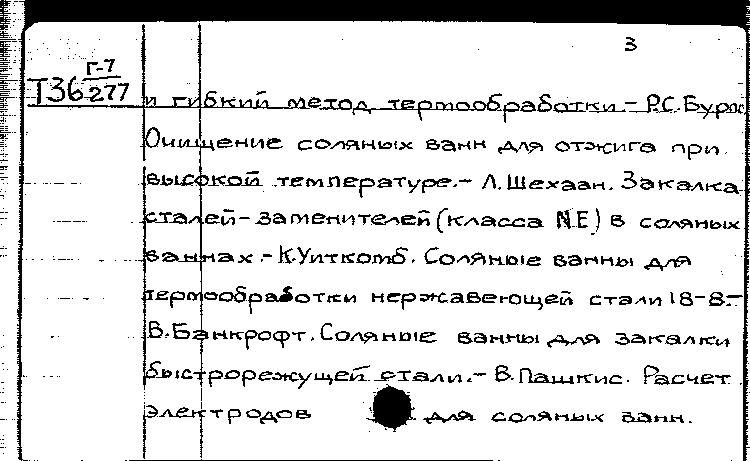 3
Т36 Г-7
277
и гибкий метод термообработки - Р.С. Бурпо
Очищение соляных ванн для отжига при
высокой температуре. - Л. Шехаан. Закалка
сталей-заменителей (класса N.E) в соляных
ваннах. - К. Уиткомб. Соляные ванны для
термообработки нержавеющей стали 18-8. -
В. Банкрофт. Соляные ванны для закалки
быстрорежущей стали. - В. Пашкис. Расчет
электродов для соляных ванн.